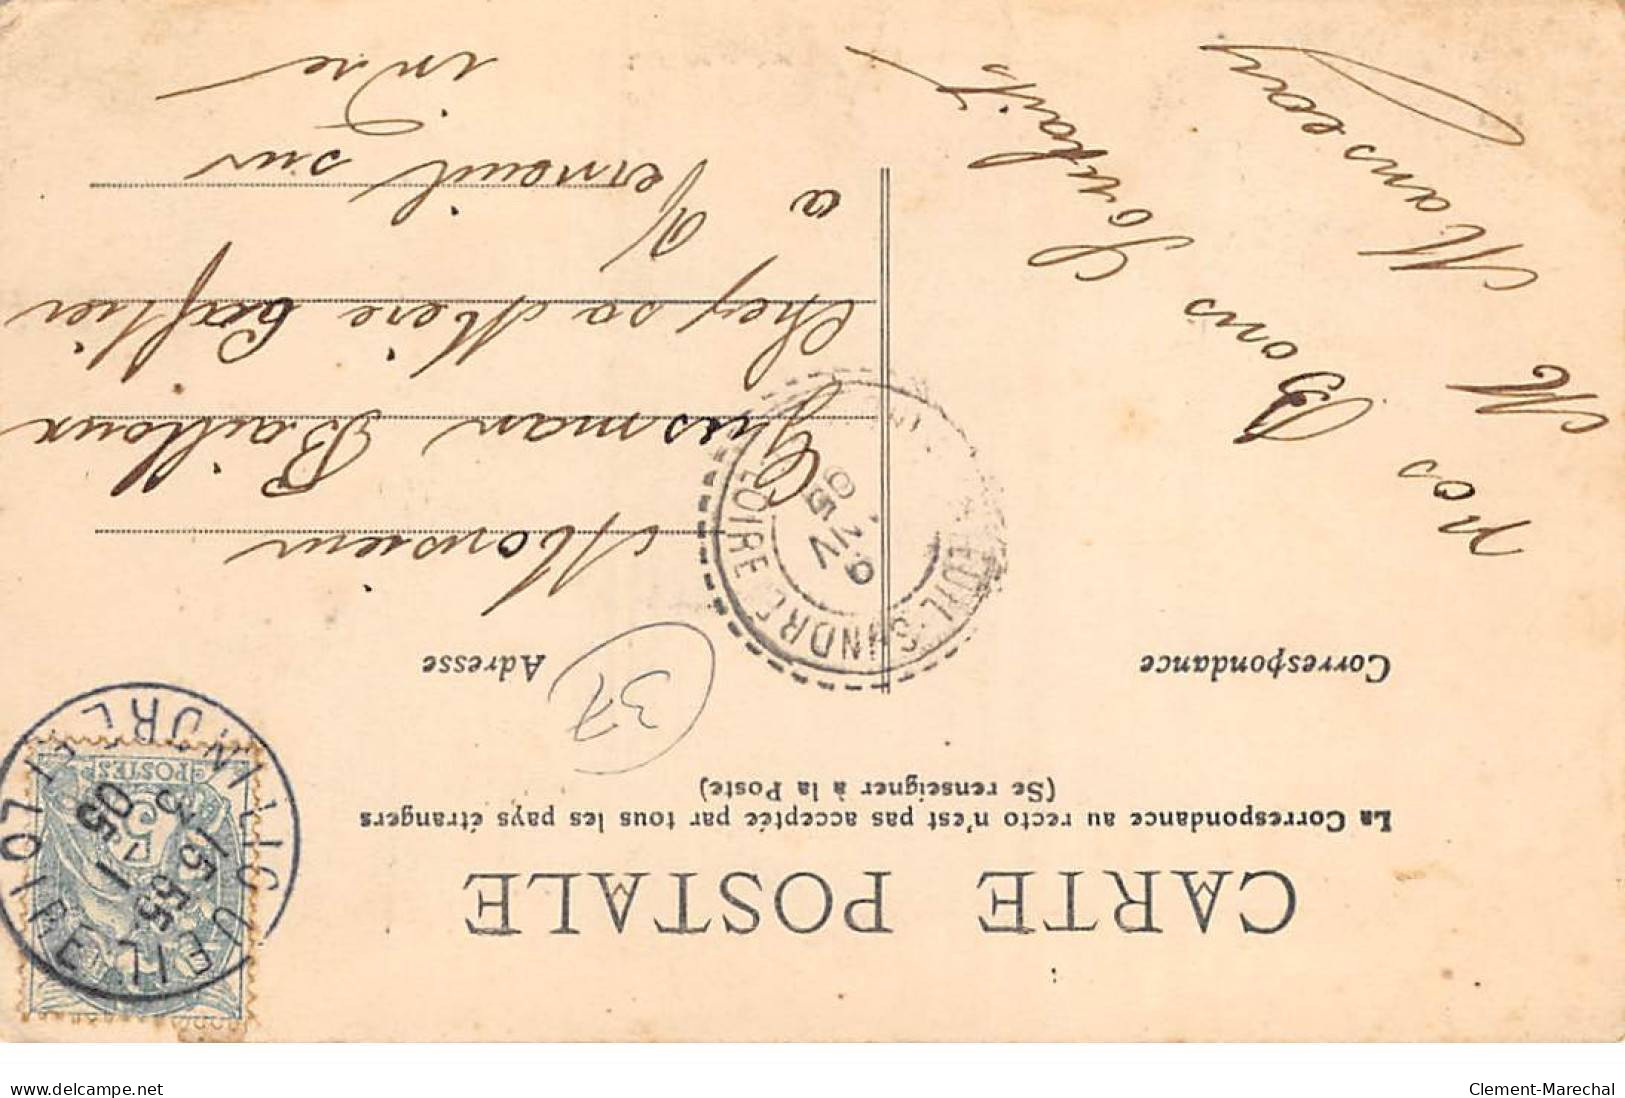 CARTE POSTALE
La Correspondance au recto n'est pas acceptée par tous les pays étrangers
(Se renseigner à la Poste)
Correspondance
Adresse
37
nos
Bons
Souhaits
M Manseau
Monsieur
Gusman Bailloux
chez sa Mère Caftier
a Verneuil sur
indre
EUIL-S-INDRE
LOIRE
6
NV
05
AZAY-
5
POSTES
LIGUEIL
INDRE ET LOIRE
3/5 55
05
www.delcampe.net
Clement-Marechal